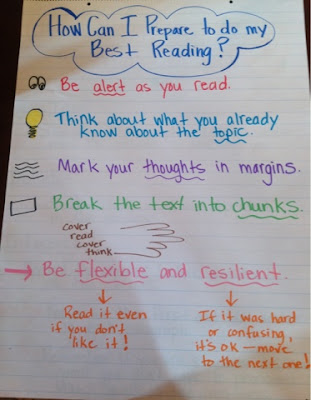 How Can I Prepare to do my
Best Reading?
Be alert as you read.
Think about what you already
know about the topic.
Mark your thoughts in margins.
Break the text into chunks.
cover
read
cover
think
Be flexible and resilient.
Read it even
if you don't
like it!
If it was hard
or confusing,
it's ok - move
to the next one!